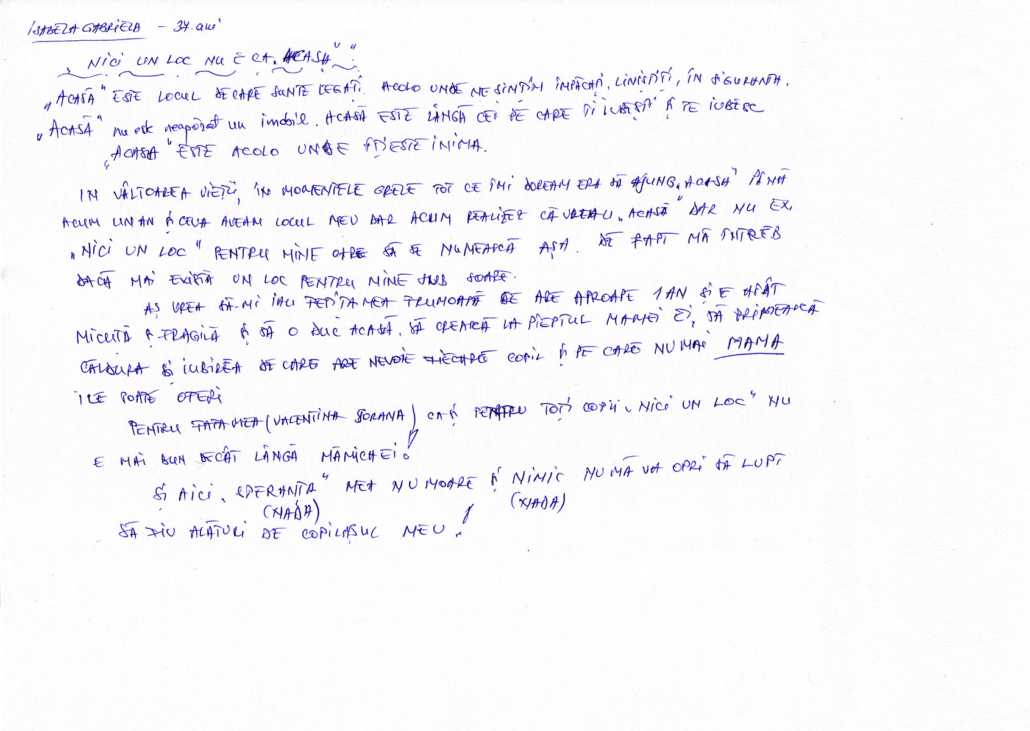 ISABELA GABRIELA - 37 ani
„NICI UN LOC NU E CA „ACASĂ"":
„ACASĂ" ESTE LOCUL DE CARE SUNTE LEGAȚI. ACOLO UNDE NE SIMȚIM ÎMPĂCAȚI, LINIȘTIȚI, ÎN SIGURANȚĂ.
„ACASĂ" nu este neapărat un imobil. ACASĂ ESTE LÂNGĂ CEI PE CARE ÎI IUBEȘTI ȘI TE IUBESC
„ACASĂ" ESTE ACOLO UNDE ÎȚI ESTE INIMA.
IN VÂLTOAREA VIEȚII, ÎN MOMENTELE GRELE TOT CE ÎMI DOREAM ERA SĂ AJUNG „ACASĂ" PÂNĂ
ACUM UN AN ȘI CEVA AVEAM LOCUL MEU DAR ACUM REALIZEZ CĂ VREAU „ACASĂ" DAR NU EX.
„NICI UN LOC" PENTRU MINE CARE SĂ SE NUMEASCĂ AȘA. DE FAPT MĂ ÎNTREB
DACĂ MAI EXISTĂ UN LOC PENTRU MINE SUB SOARE.
AȘ VREA SĂ-MI IAU FETIȚA MEA FRUMOASĂ CE ARE APROAPE 1 AN ȘI E ATÂT
MICUȚĂ ȘI FRAGILĂ ȘI SĂ O DUC ACASĂ. SĂ CREASCĂ LA PIEPTUL MAMEI EI, SĂ PRIMEASCĂ
CĂLDURA ȘI IUBIREA DE CARE ARE NEVOIE FIECARE COPIL ȘI PE CARE NUMAI MAMA
I LE POATE OFERI
PENTRU FATA MEA (VALENTINA SORANA) CA ȘI PENTRU TOȚI COPIII „NICI UN LOC" NU
E MAI BUN DECÂT LÂNGĂ MĂMICA EI!
ȘI AICI, „SPERANȚA" MEA NU MOARE ȘI NIMIC NU MĂ VA OPRI SĂ LUPT
(NADA) (NADA)
SĂ FIU ALĂTURI DE COPILAȘUL MEU!